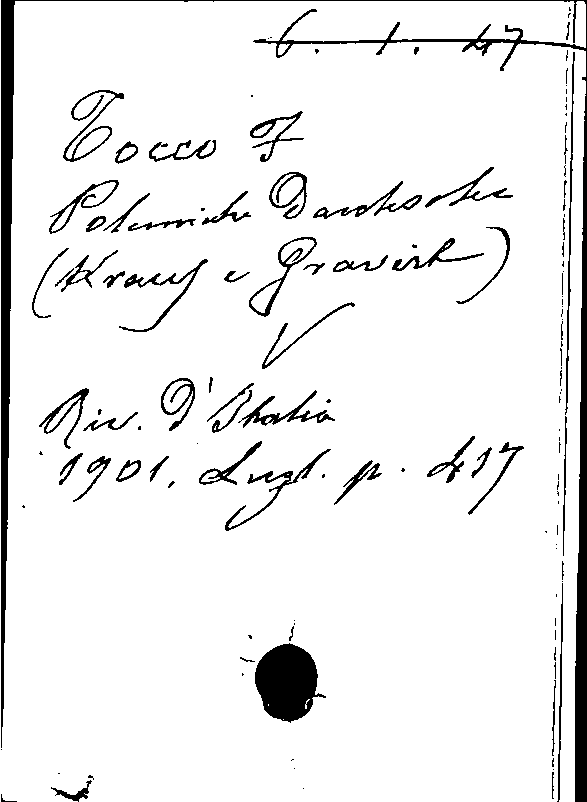 6. 1. 47
Tocco F
Polemiche Dantesche
(Kraus e Gravisk)
Riv. D'Italia
1901. Lugl. p. 417